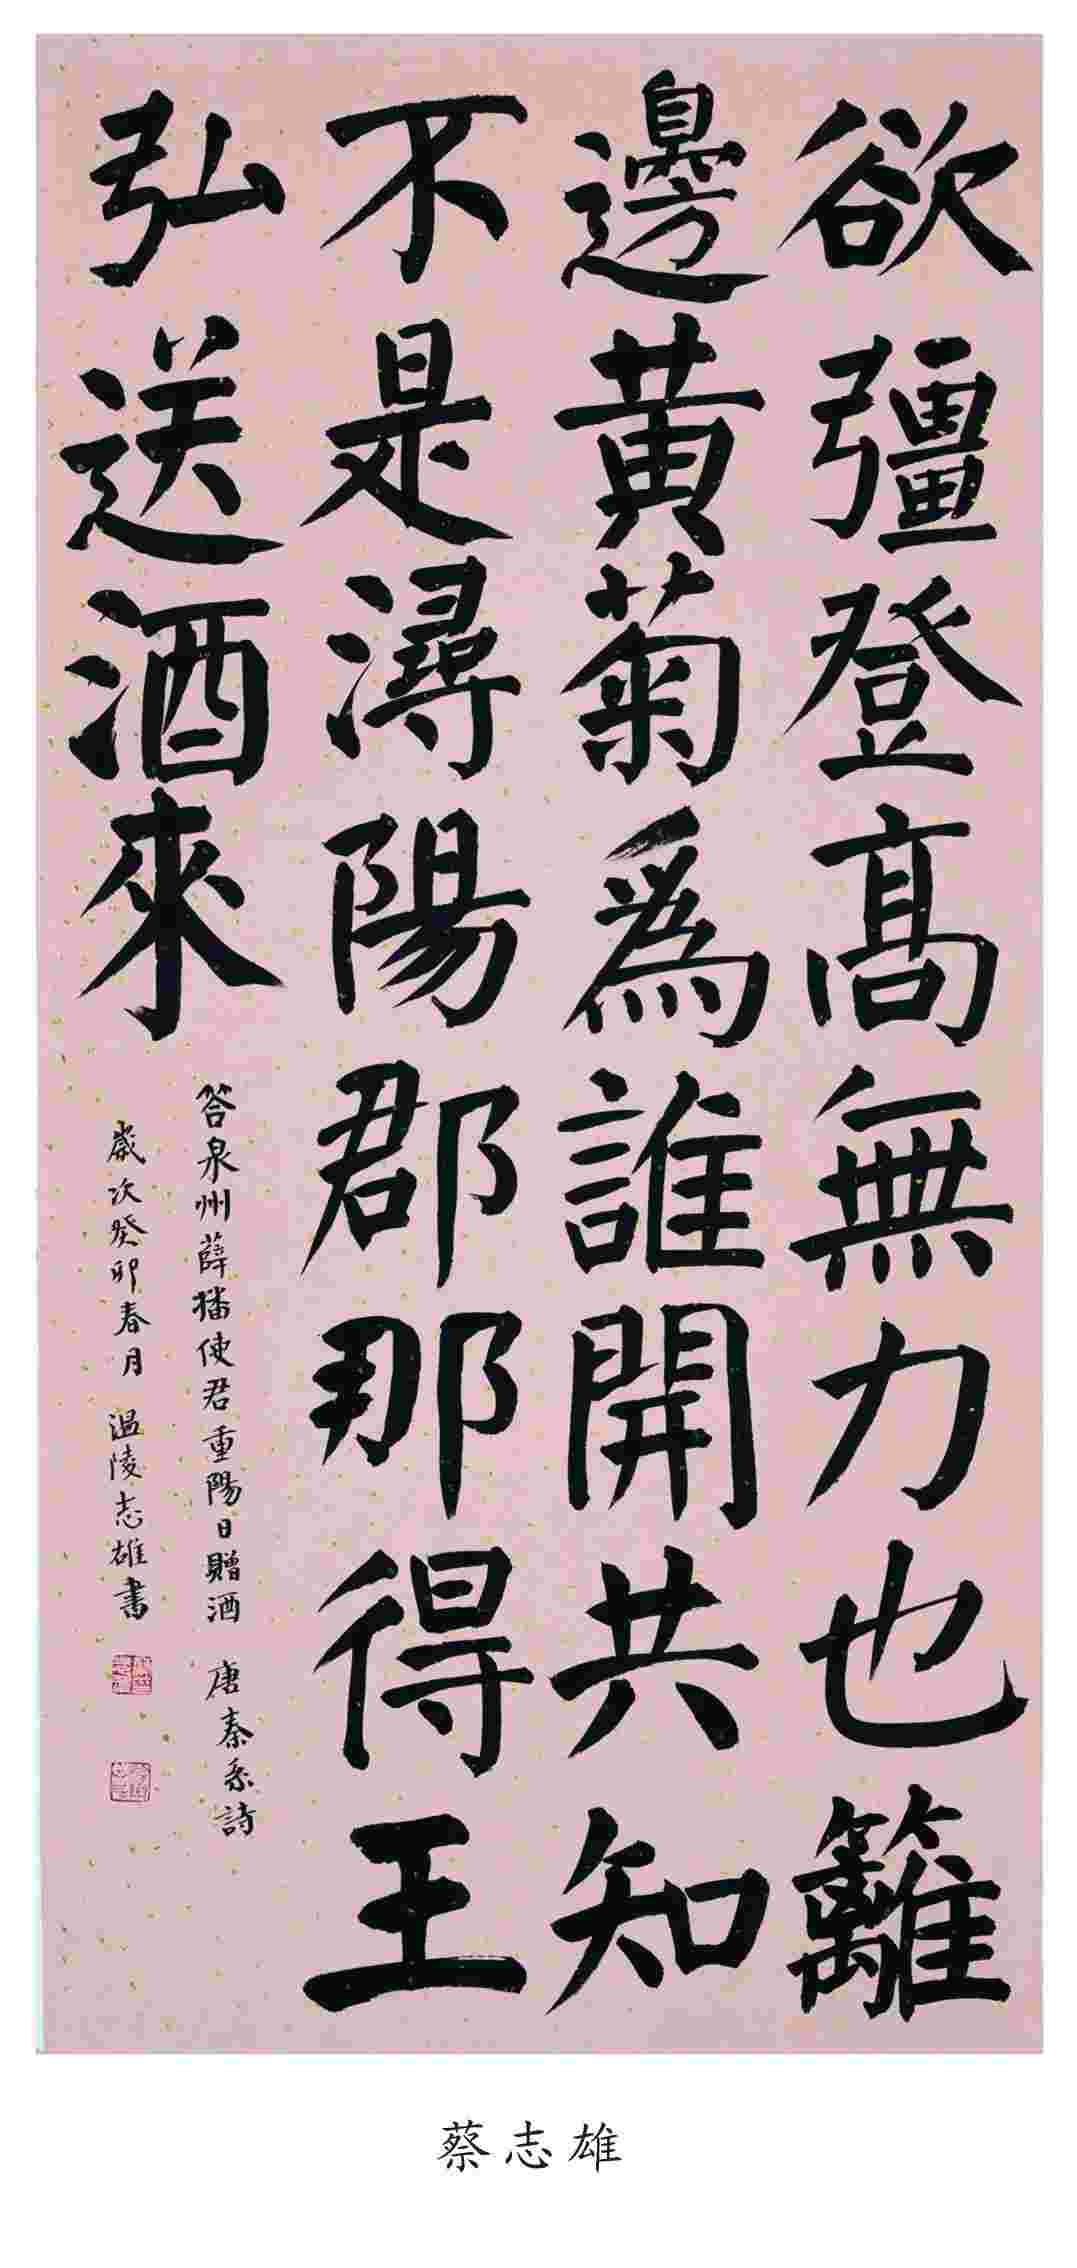 欲彊登高無力也籬
邊黃菊爲誰開共知
不是潯陽郡那得王
弘送酒來
答泉州薛播使君重陽日贈酒 唐秦系詩
歲次癸卯春月 温陵志雄書
蔡志雄